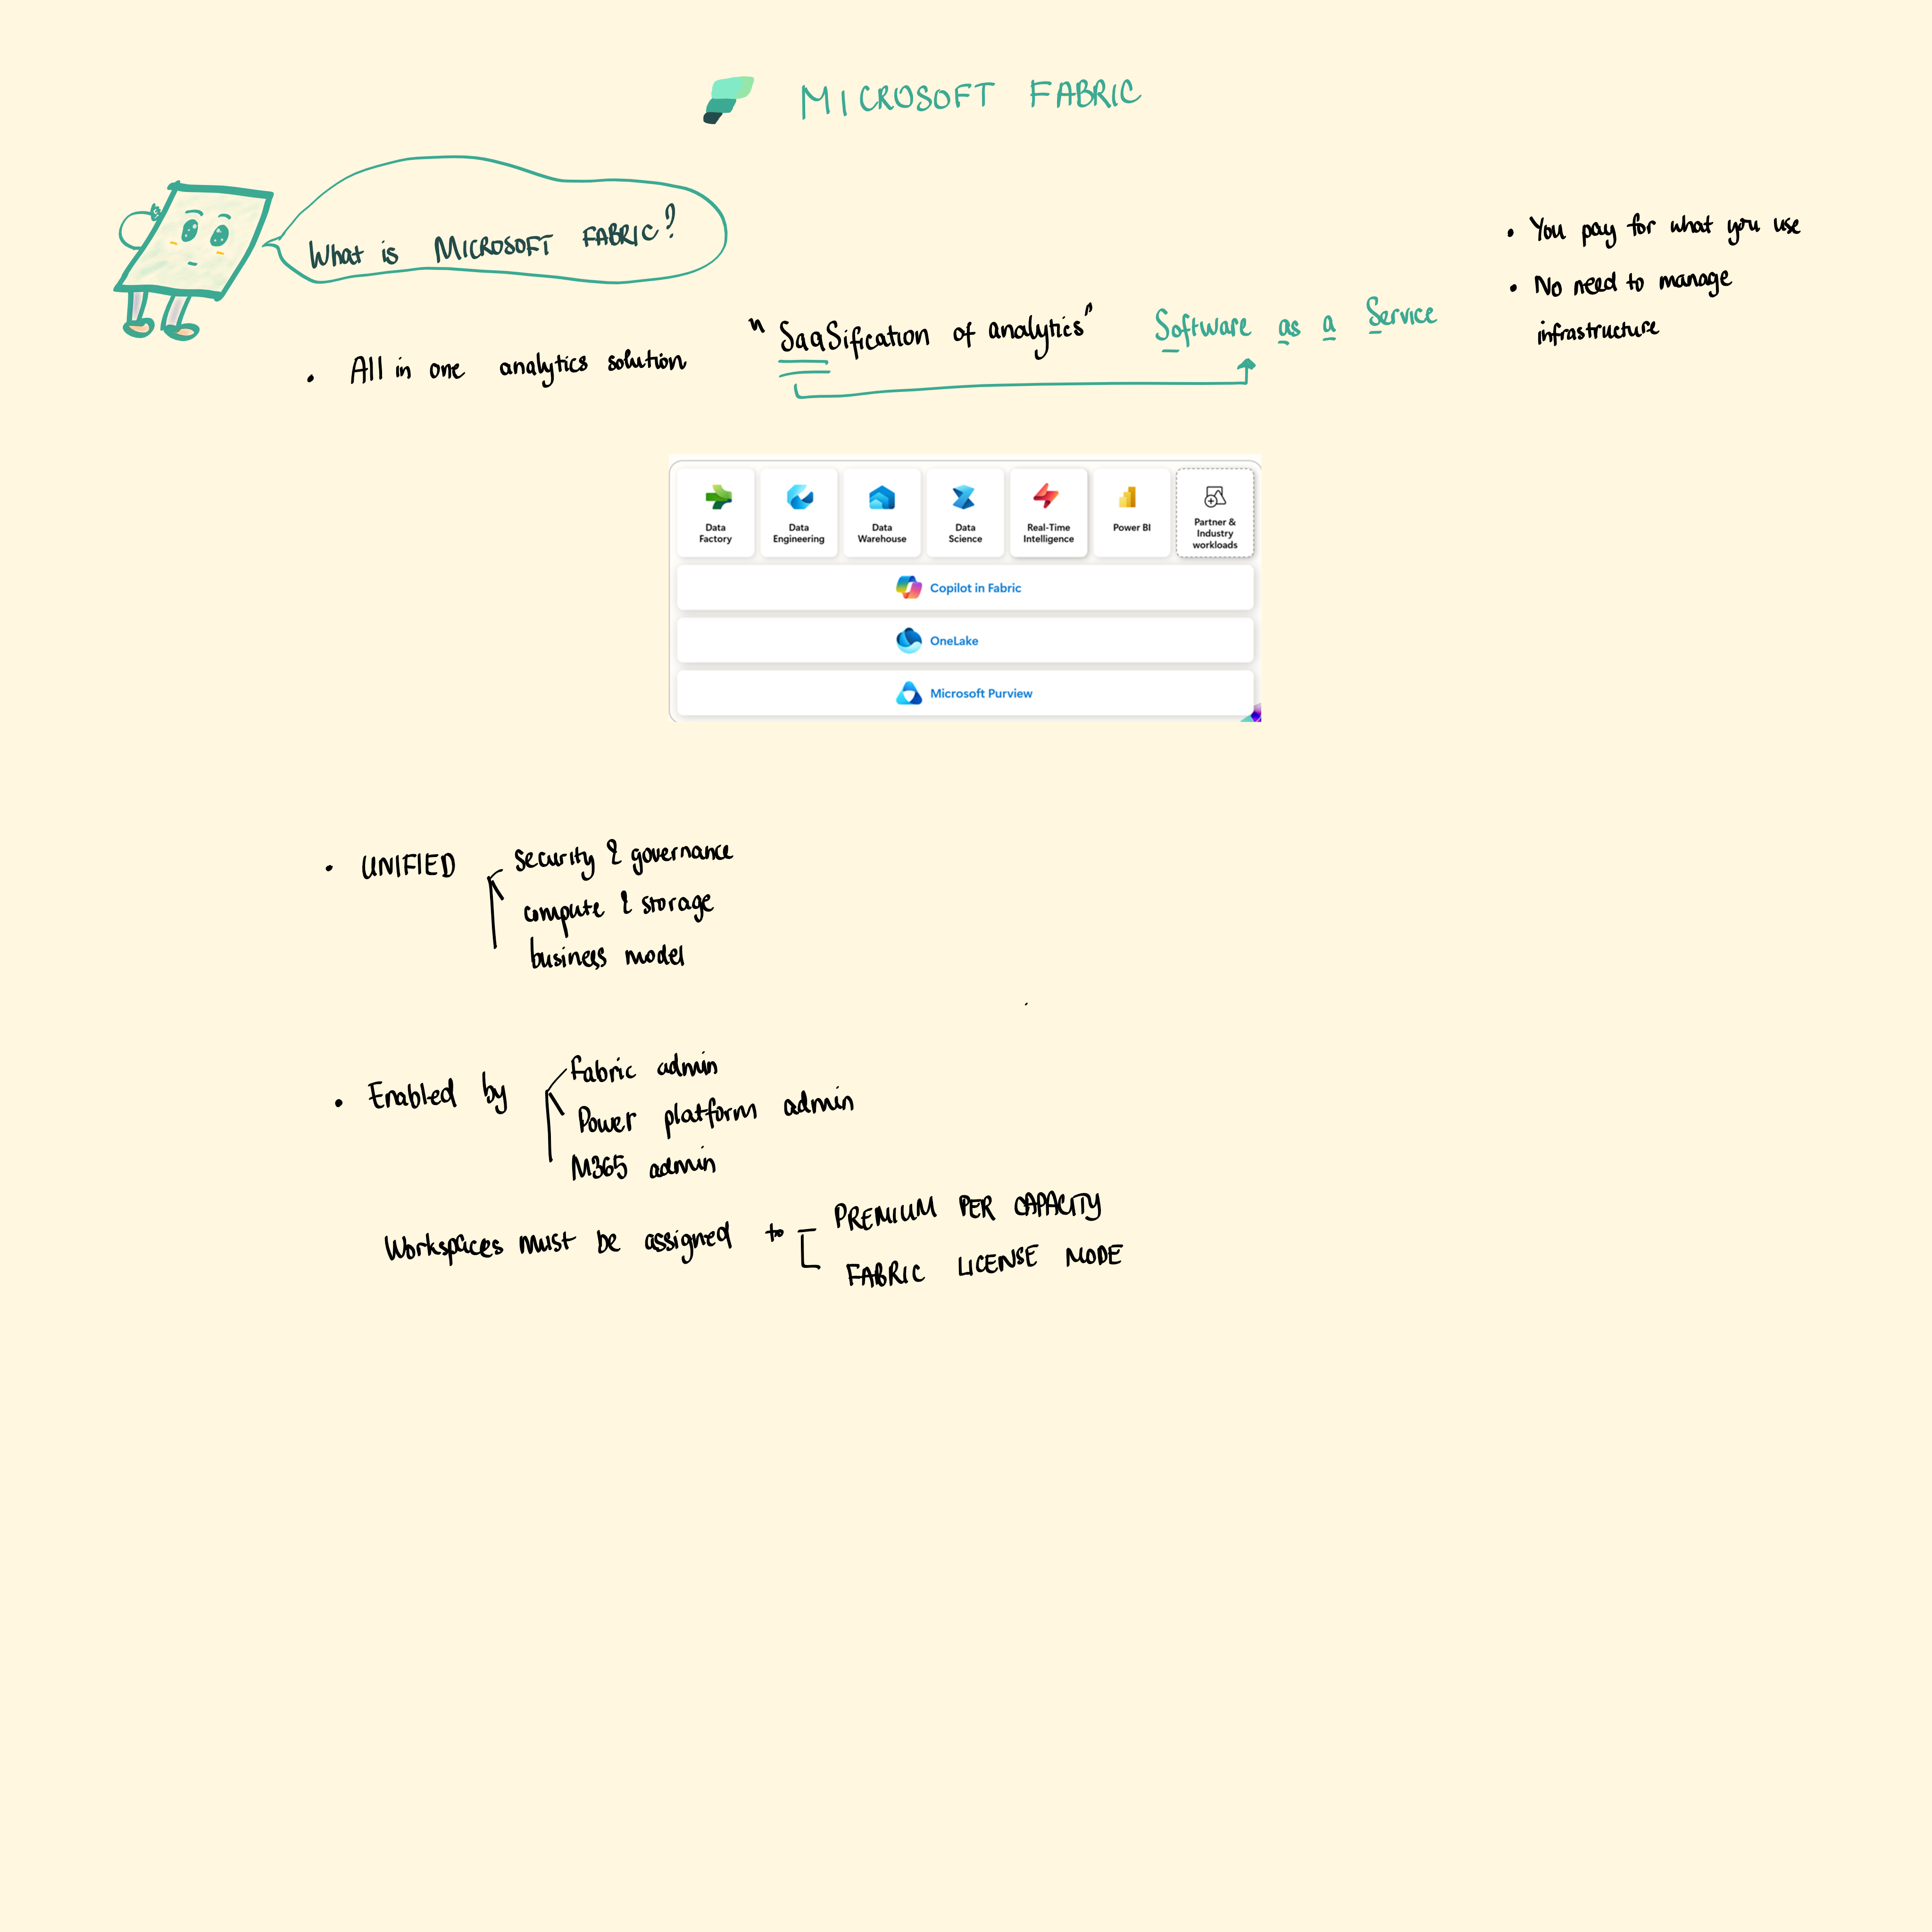 MICROSOFT FABRIC
What is MICROSOFT FABRIC?
• You pay for what you use
• No need to manage
infrastructure
• All in one analytics solution
"SaaSification of analytics"
Software as a Service
Data
Factory
Data
Engineering
Data
Warehouse
Data
Science
Real-Time
Intelligence
Power BI
Partner &
Industry
workloads
Copilot in Fabric
OneLake
Microsoft Purview
• UNIFIED
security & governance
compute & storage
business model
• Enabled by
Fabric admin
Power platform admin
M365 admin
Workspaces must be assigned to
PREMIUM PER CAPACITY
FABRIC LICENSE MODE